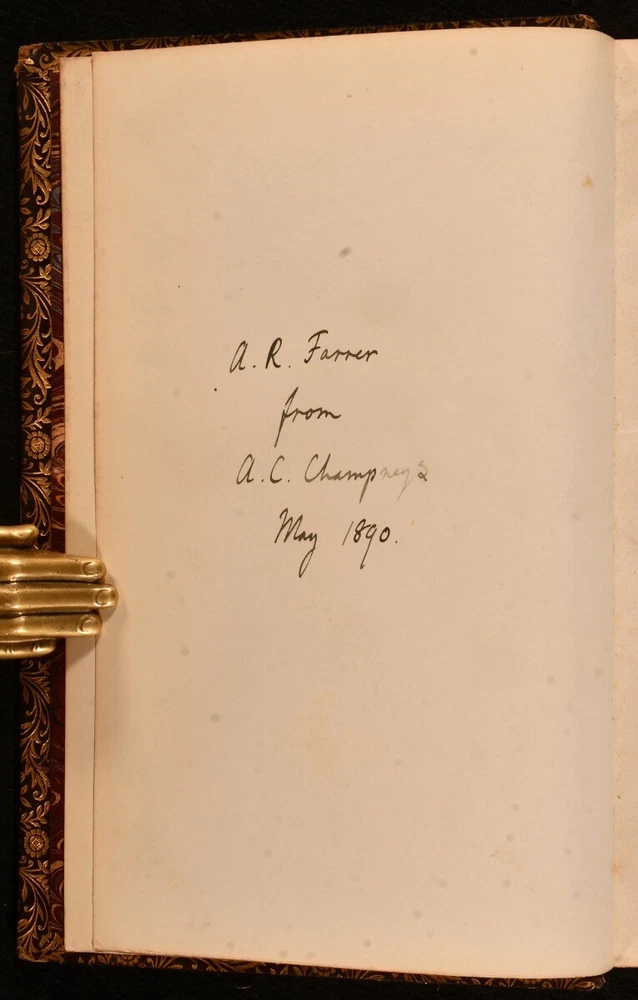 A. R. Farrer
from
A. C. Champneys
May 1890.